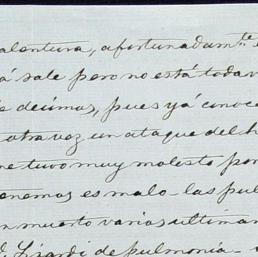 alentura, afortunadamte
á sale pero no está todav
s decimas, pues yá conoce
otra vez un ataque del h
me tuvo muy molesto por
enemos es malo - las pul
n muerto varias ultimam
Lizardi de pulmonia -